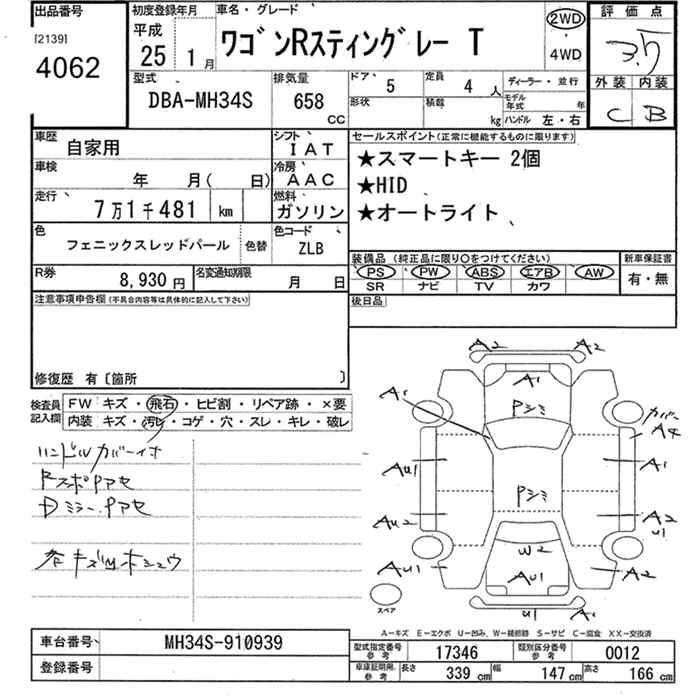 出品番号
[2139]
4062
初度登録年月
平成
25
1月
車名・グレード
ワゴンRスティングレー T
2WD
・
4WD
評価点
3.5
外装 内装
C B
型式
DBA-MH34S
排気量
658
cc
ドア
5
定員
4人
形状
積載
kg
ディーラー・並行
モデル年式
年
ハンドル 左・右
車歴
自家用
シフト
IAT
車検
年 月( 日)
冷房
AAC
走行
7万1千481 km
燃料
ガソリン
色
フェニックスレッドパール
色替
色コード
ZLB
R券
8,930 円
名変通知期限
月 日
セールスポイント(正常に機能するものに限ります)
★スマートキー 2個
★HID
★オートライト
装備品(純正品に限り○をつけてください)
PS PW ABS エアB AW
SR ナビ TV カワ
新車保証書
有・無
後日品
注意事項申告欄(不具合内容等は具体的に記入して下さい)
修復歴 有〔箇所 〕
検査員
記入欄
FW キズ・飛石・ヒビ割・リペア跡・×要
内装 キズ・汚レ・コゲ・穴・スレ・キレ・破レ
ハンドルカバー付
RスポPアセ
Dミラー・Pアセ
各キズ凹ホシュウ
A2 A2
A1
A1
Pシミ
カバー
A4
AU1
A1
Pシミ
AU2
A2
U1
W2
AU1
AU1
A2
スペア
U1 A1
A−キズ E−エクボ U−凹み、W−補修跡 S−サビ C−腐食 XX−交換済
車台番号
MH34S-910939
登録番号
型式指定番号
参考
17346
類別区分番号
参考
0012
車庫証明用、
参考
長さ
339 cm
幅
147 cm
高さ
166 cm